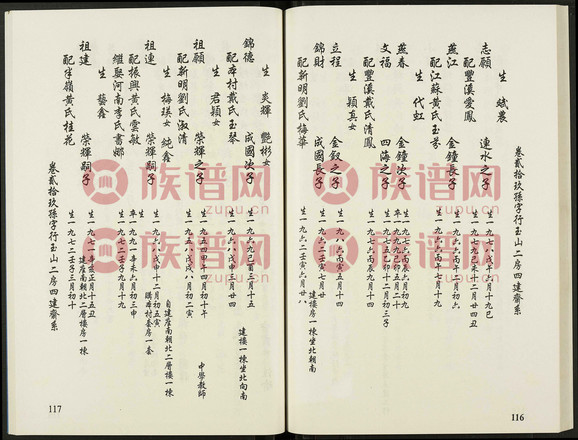 卷貳拾玖孫字行玉山二房四建齋系
志願 連水之子 生一九七八戊午六月十九巳
配豐溪愛鳳 生一九七九己未十二月廿四丑
生 斌農
燕江 金鐘長子 生一九六六丙午二月初六
配江蘇黃氏玉芬 生一九六六丙午七月初十
生 代虹
燕春 金鐘次子 生一九七六丙辰六月初九
文福 四海之子 生一九七五乙卯十二月初三子
配豐溪戴氏清鳳 生一九七六丙辰九月十四
生 穎真女
立程 金釵之子 生一九八六丙寅五月十四
錦財 成國長子 生一九六二壬寅七月廿
建樓房一棟坐北朝南
配新明劉氏梅華 生一九六二壬寅六月廿八
116
生 炎輝 艷彬女
錦德 成國次子 生一九六九己酉三月十五
建樓一棟坐北向南
配本村戴氏玉琴 生一九六八戊申三月廿四
生 君穎女
祖願 榮輝之子 生一九五四甲午四月初十午
中學教師
配新明劉氏淑清 生一九五八戊戌八月初二寅
生 梅瑛女 純鑫
祖連 榮輝嗣子 生一九六八戊申十二月初五寅
自建座南朝北二層樓一棟
配振興黃氏雲敏
繼娶河南李氏書娜 生一九七二壬子九月十九
生 藝鑫
祖建 榮輝嗣子 生一九七一辛亥正月十五丑
建座南朝北二層樓房一棟
配半嶺黃氏桂花 生一九七二壬子三月初十
卷貳拾玖孫字行玉山二房四建齋系
117
族谱网
zupu.cn
族谱网
zupu.cn